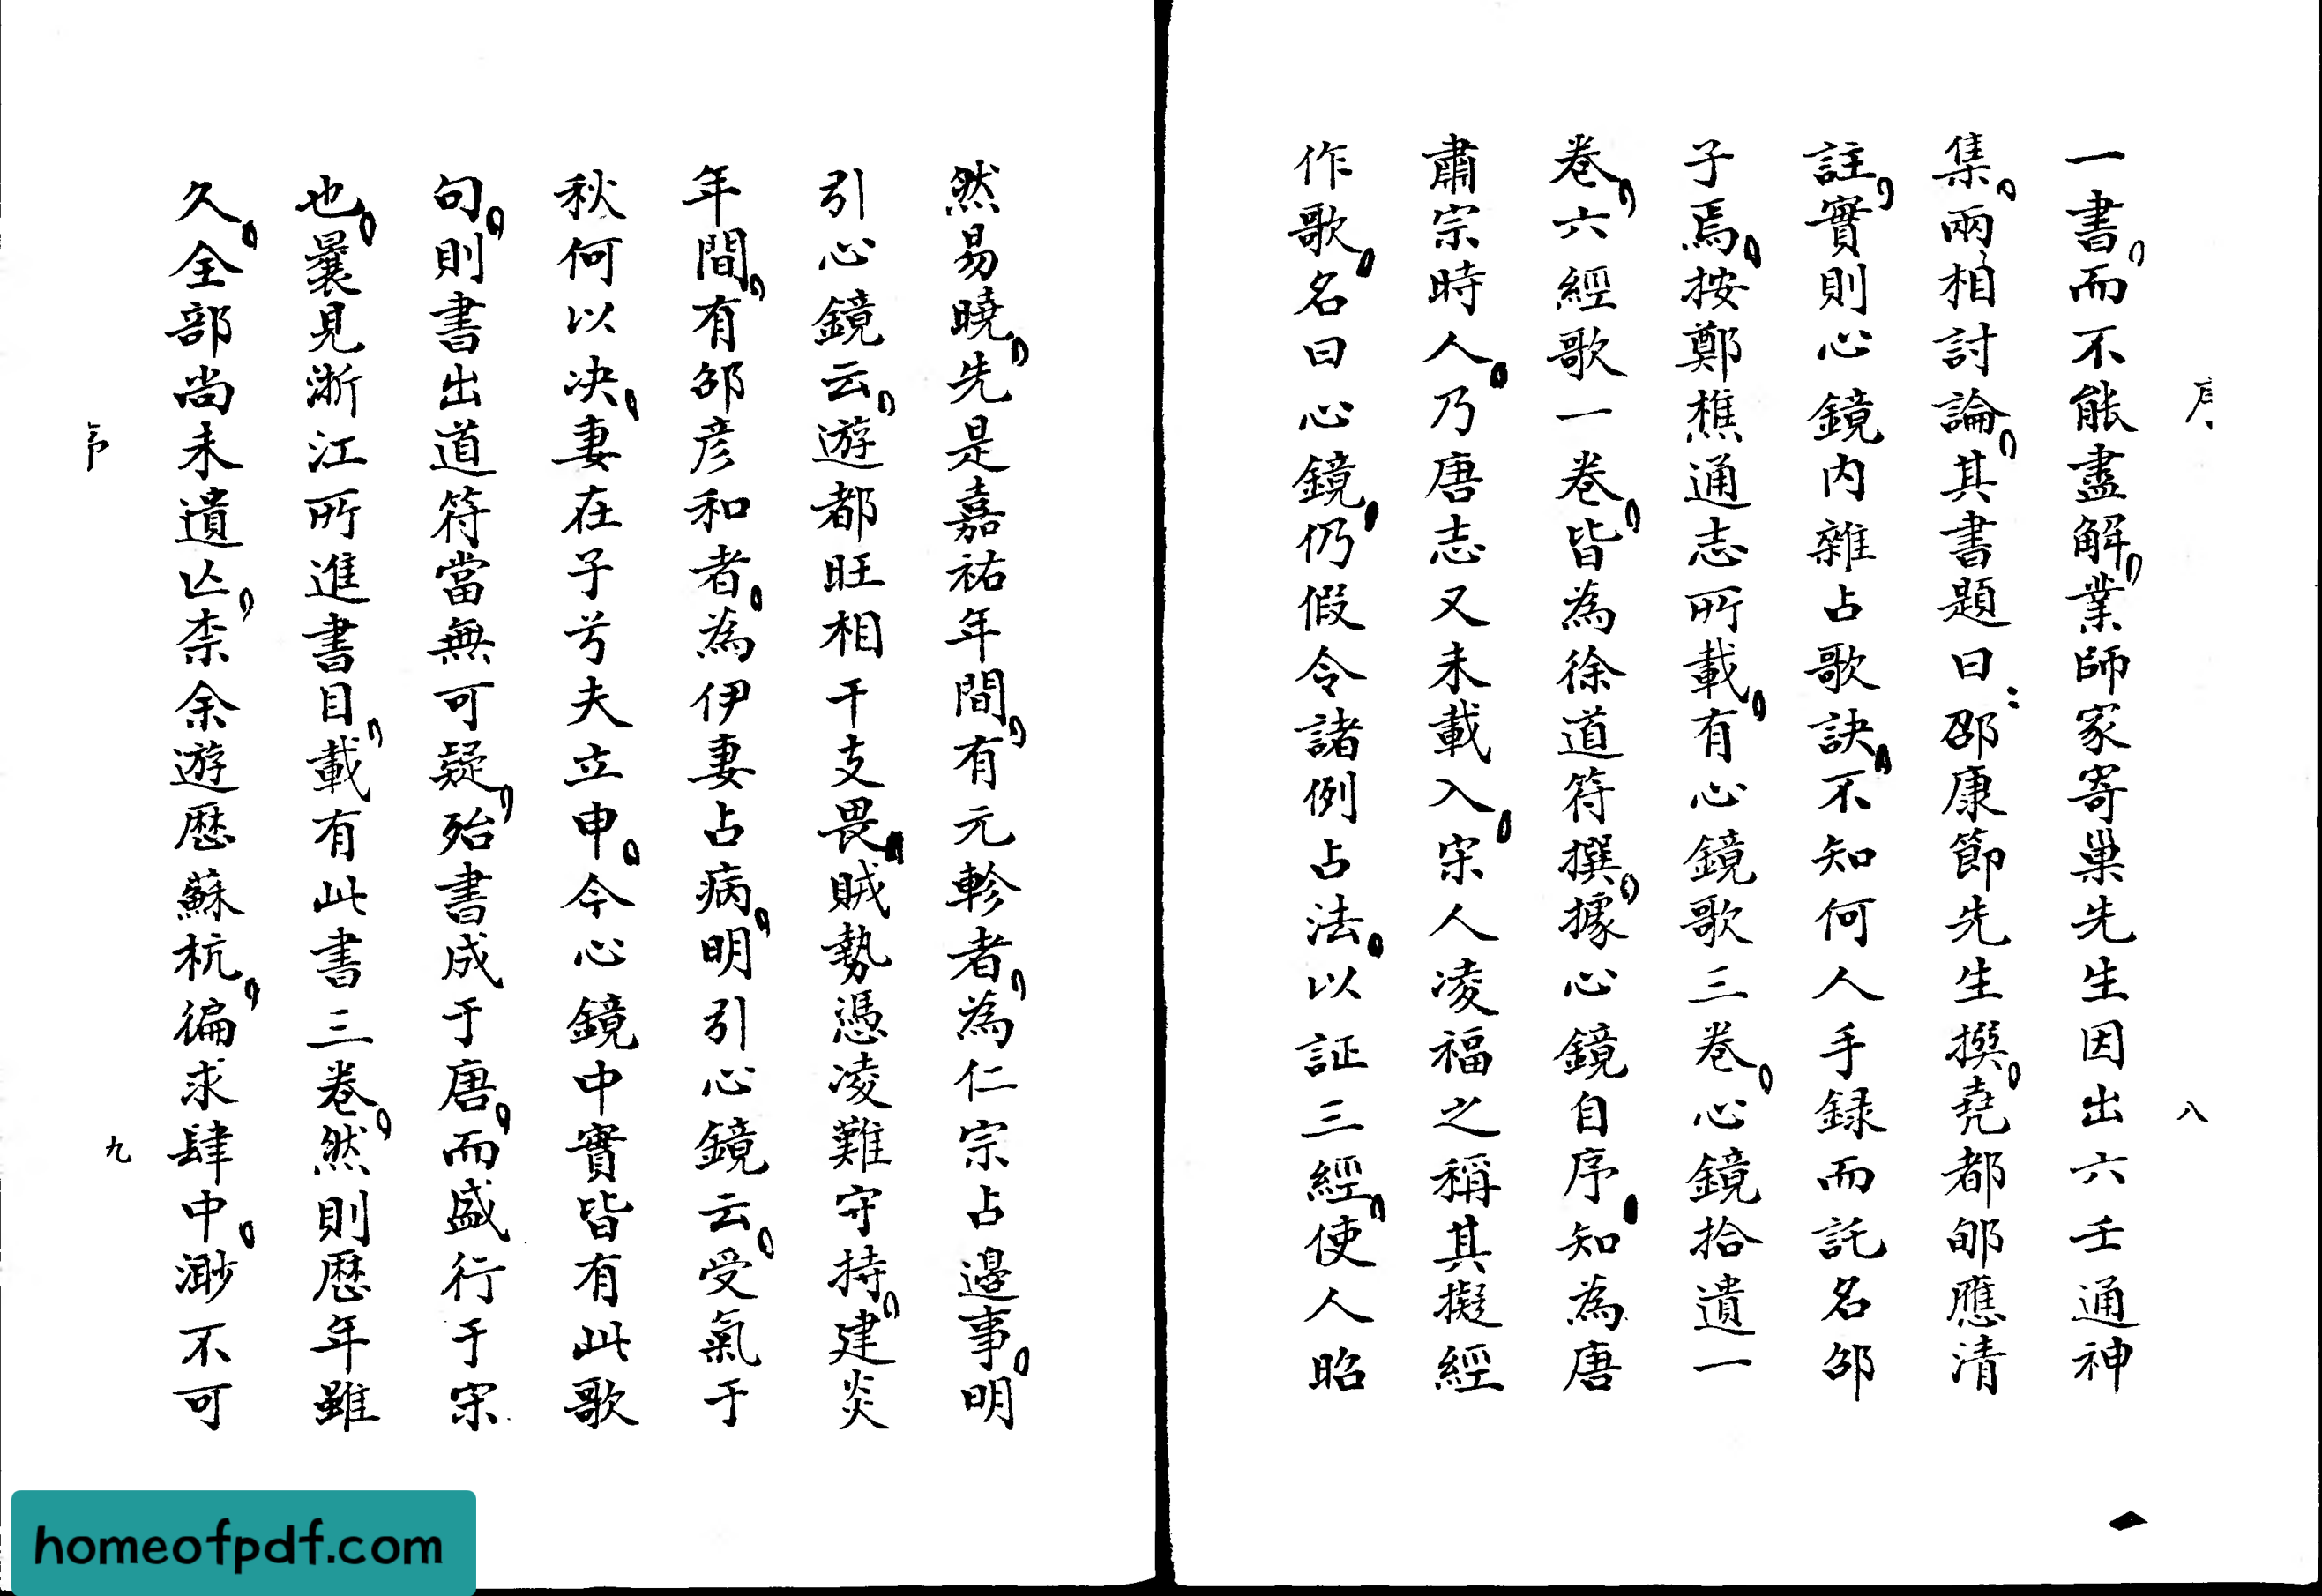 序
八
一書，而不能盡解，業師家寄巢先生因出六壬通神
集，兩相討論，其書題曰：邵康節先生撰，堯都郇應清
註，實則心鏡内雜占歌訣，不知何人手録而託名邵
子焉，按鄭樵通志所載，有心鏡歌三卷，心鏡拾遺一
卷，六經歌一卷，皆為徐道符撰，據心鏡自序，知為唐
肅宗時人，乃唐志又未載入，宋人凌福之稱其擬經
作歌，名曰心鏡，仍假令諸例占法，以証三經，使人昭
然易曉，先是嘉祐年間，有元軫者，為仁宗占邊事，明
引心鏡云，遊都旺相干支畏，賊勢憑凌難守持，建炎
年間，有邵彦和者，為伊妻占病，明引心鏡云，受氣于
秋何以决，妻在子兮夫立申，今心鏡中實皆有此歌
句，則書出道符當無可疑，殆書成于唐，而盛行于宋
也，曩見浙江所進書目，載有此書三卷，然則歷年雖
久，全部尚未遺亡，柰余遊歷蘇杭，徧求肆中，渺不可
序
九
homeofpdf.com